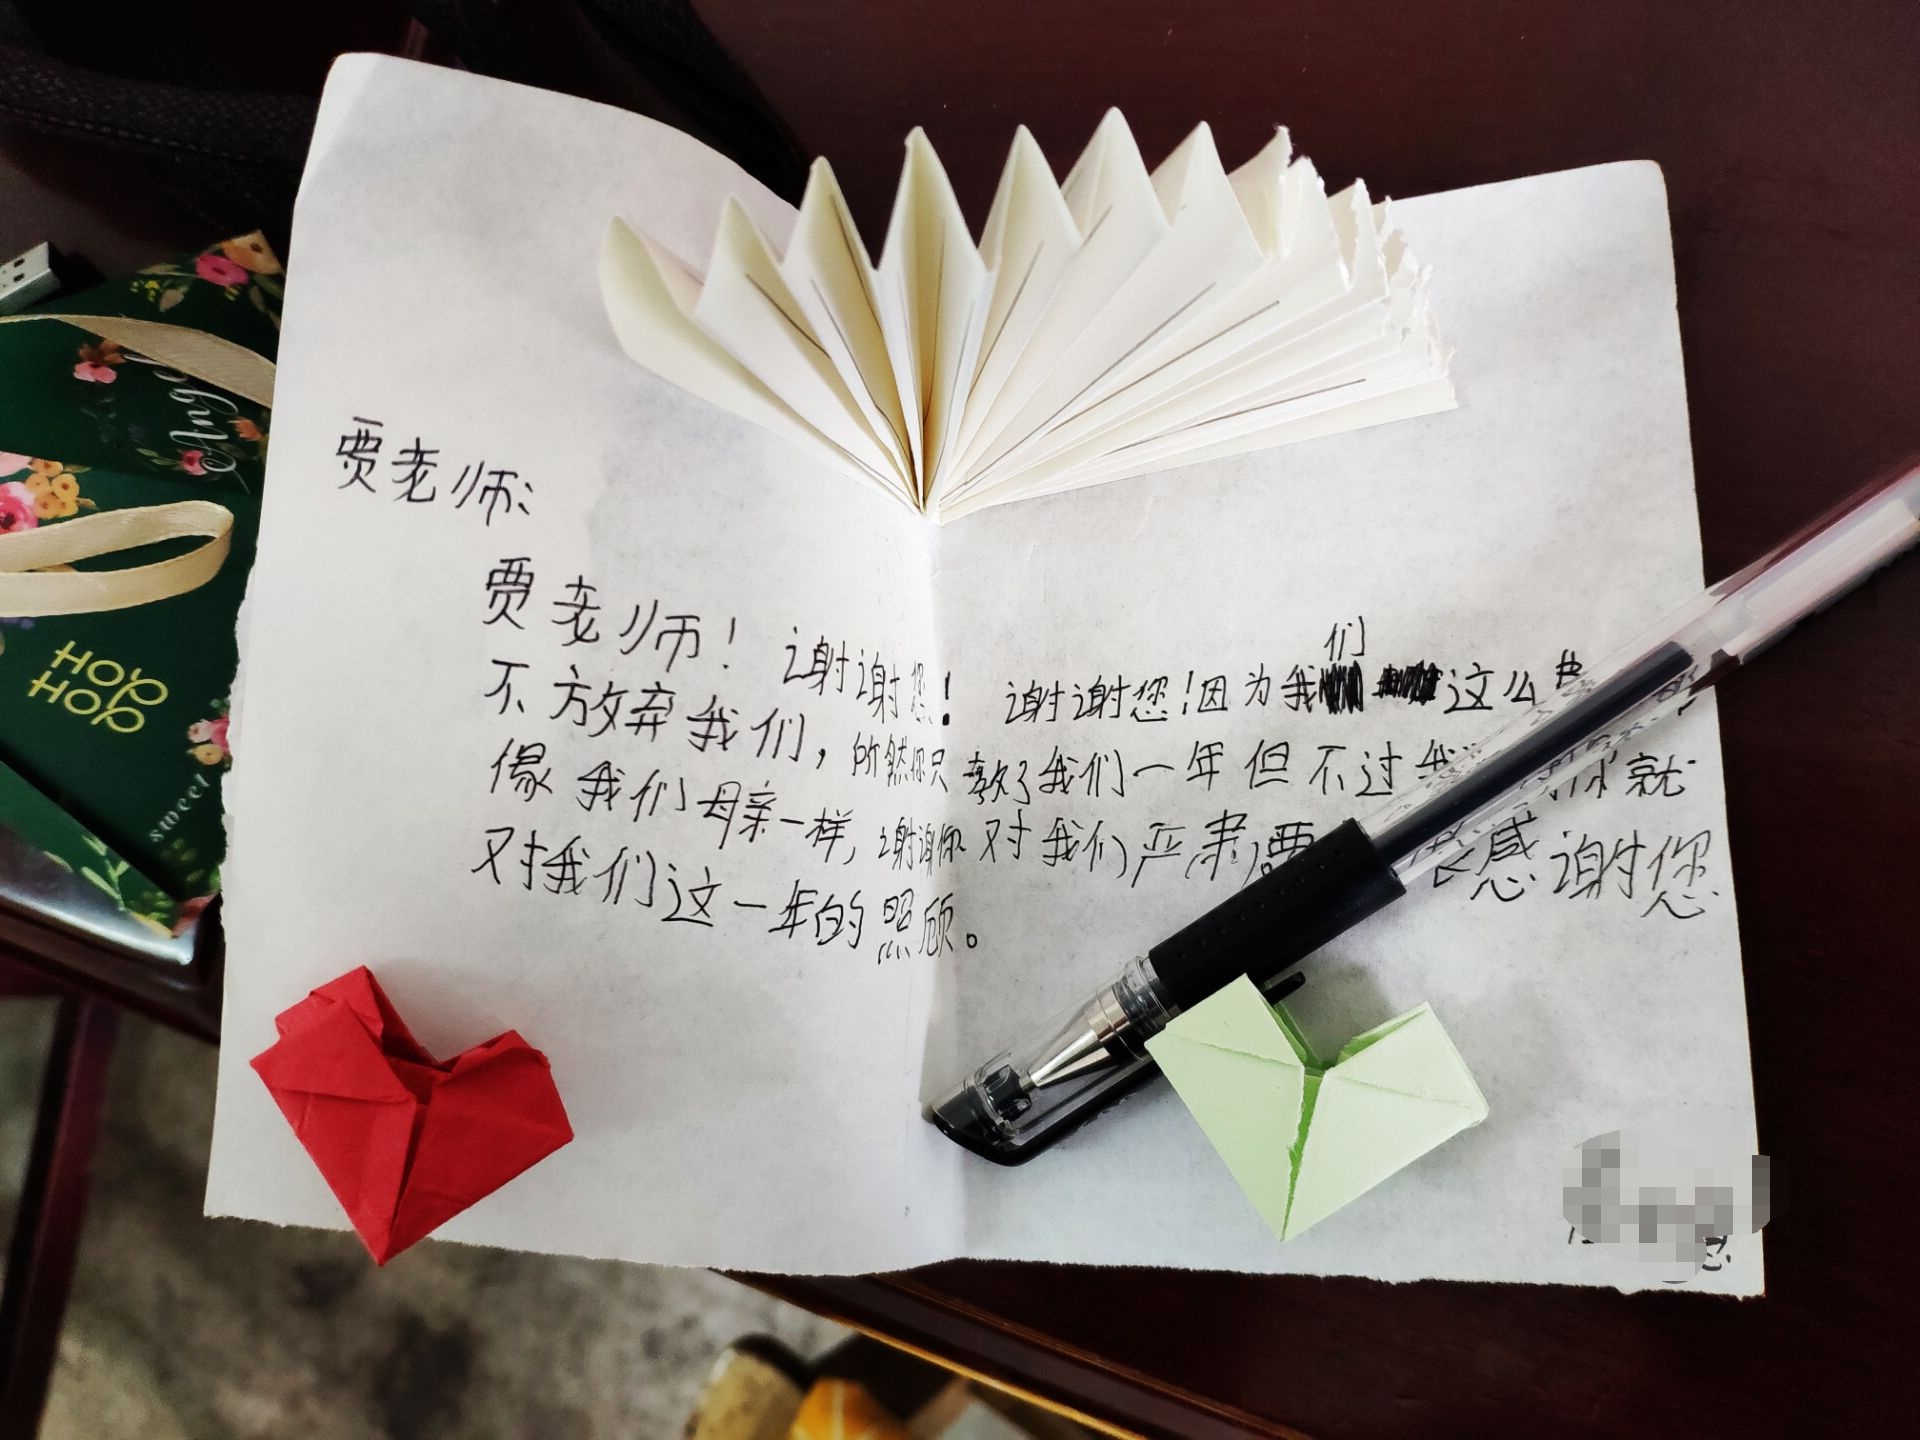 贾老师:
贾老师！谢谢您！谢谢您！因为我们这么
不放弃我们，所然你只教了我们一年但不过我你就
像我们母亲一样，谢谢你对我们严肃感谢您
对我们这一年的照顾。
Angel
HOHO
sweet